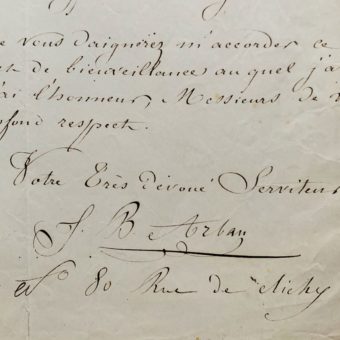 e vous daignerez m'accorder ce
de bienveillance au quel j'a
ai l'honneur, Messieurs de
fond respect.
Votre Très dévoué Serviteur
J. B te Arban
No 80 Rue de Clichy